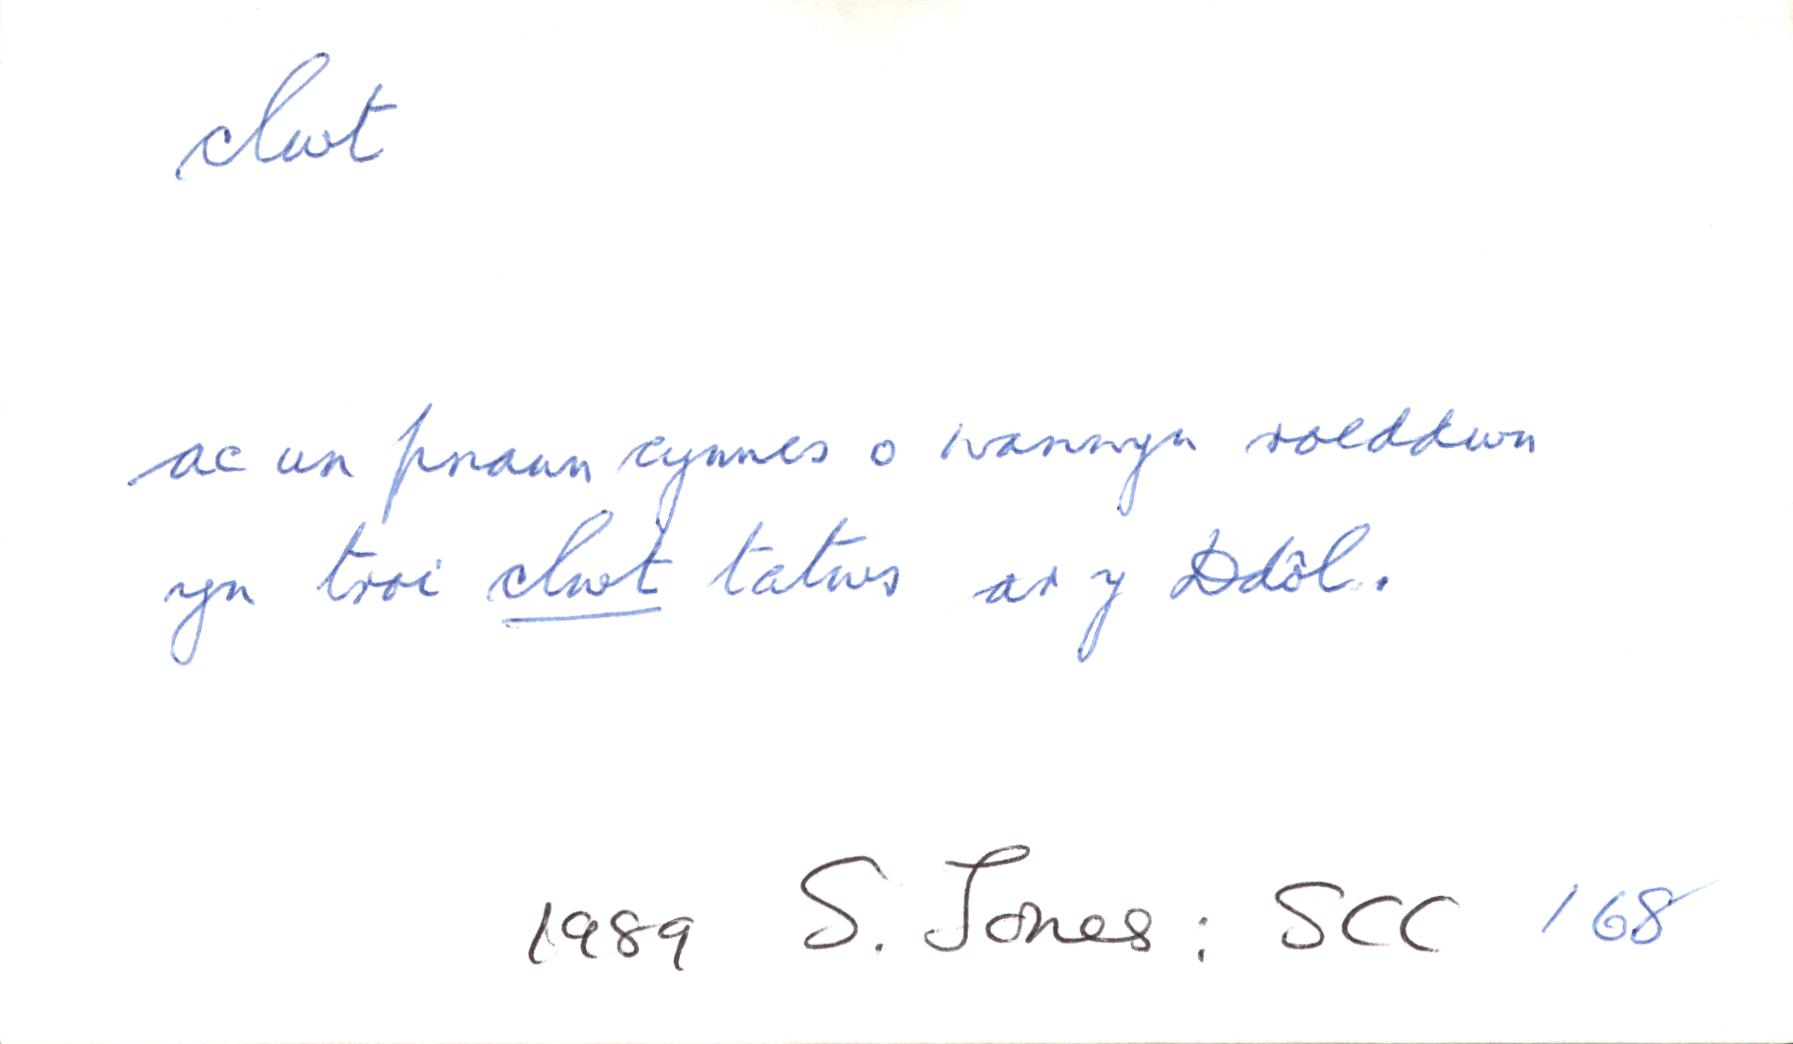 clwt
ac un pnawn cynnes o wanwyn roeddwn
yn troi clwt tatws ar y Ddôl.
1989 S. Jones: SCC 168